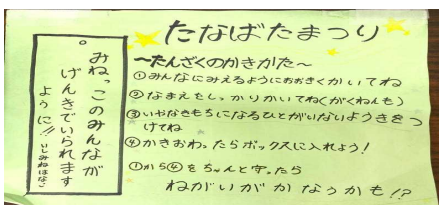 たなばたまつり
〜たんざくのかきかた〜
①みんなにみえるようにおおきくかいてね
②なまえをしっかりかいてね(がくねんも)
③いやなきもちになるひとがいないようきをつ
けてね
④かきおわったらボックスに入れよう!
①から④をちゃんと守ったら
ねがいがかなうかも!?
みねっこのみんなが
げんきでいられます
ように!!